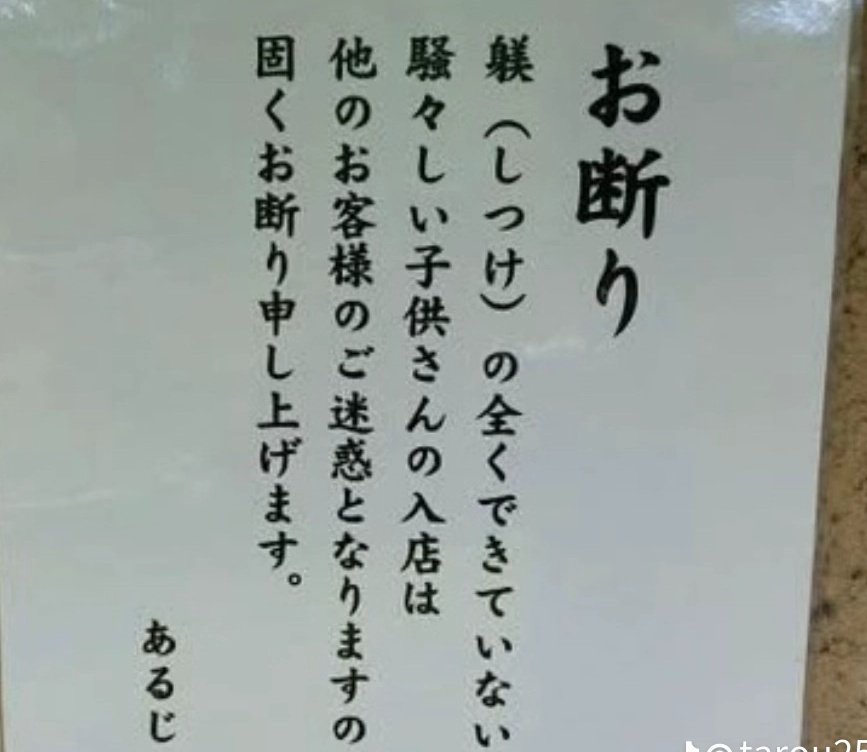 お断り
躾（しつけ）の全くできていない
騒々しい子供さんの入店は
他のお客様のご迷惑となりますの
固くお断り申し上げます。
あるじ